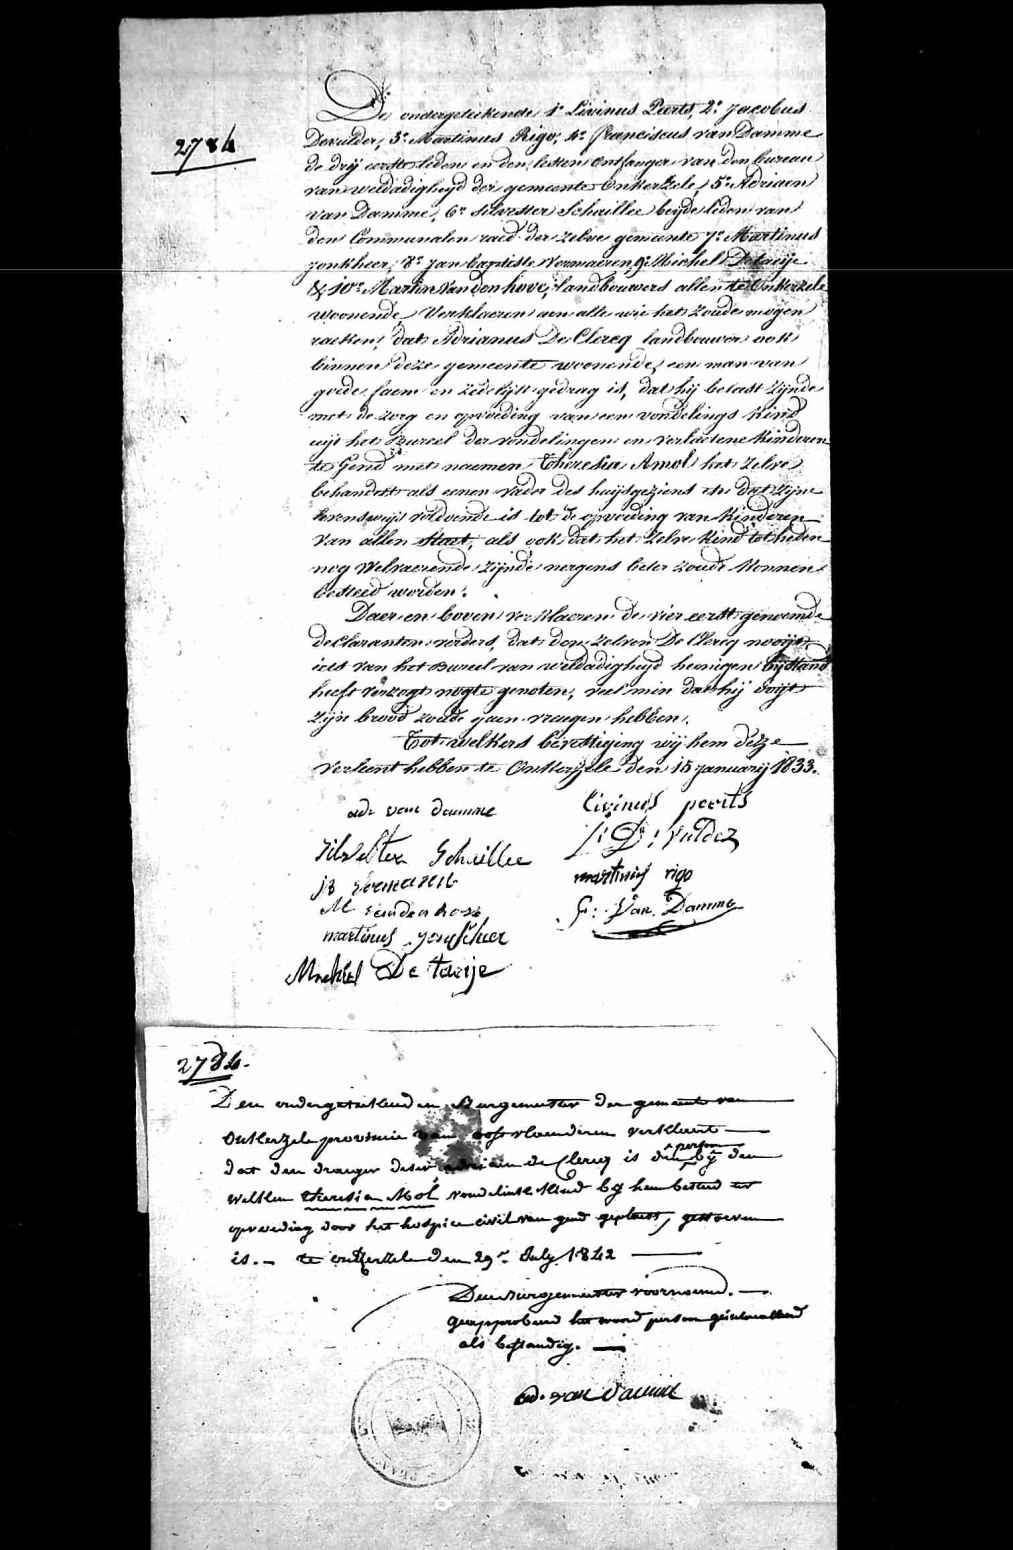 2784
De ondergeteekende 1° Livinus Peerts, 2° Jacobus
Devulder, 3° Martinus Rigo, 4° franciscus van Damme
de drij eerste leden en den lesten ontfanger van den bureau
van weldadigheyd der gemeente Onkerzele, 5° Adriaen
van Damme, 6° Silvester Schaillee beyde leden van
den Communalen raed der zelve gemeente 7° Martinus
jonkheer, 8° Jan baptiste Vermaeren, 9° Michiel Detaeije
& 10° Martin Van den hove, landbouwers allen te Onkerzele
woonende Verklaeren aen alle wie het zoude mogen
raeken, dat Adrianus De Clercq landbouwer ook
binnen deze gemeente woonende, een man van
goede faem en zedelijk gedrag is, dat hij belast zijnde
met de zorg en opvoeding van een vondelings kind
uijt het Bureel der vondelingen en verlaetene kinderen
te Gend met naemen Theresia Amol het zelve
behandelt als eenen vader des huijsgeziens en dat zijne
levenswijs voldoende is tot de opvoeding van kinderen
van allen Staet, als ook dat het zelve kind tot heden
nog welvaerende zijnde nergens beter zoude konnen
besteed worden.
Daer en boven verklaeren de vier eerst genoemde
declaranten verders, dat den zelven De Clercq nooijt
iets van het Bureel van weldadigheyd heenigen bijstand
heeft verzogt nogte genoten, veel min dat hij ooijt
zijn brood zoude gaen vraegen hebben.
Tot welkers bevestiging wij hem deze
verleent hebben te Onkerzele den 15 januarij 1833.
ad. van damme
Livinus peerts
Silvester Schaillee
J: D: Vulder
jb vermaeren
martinus rigo
M vanden hove
F: Van Damme
martinus jonckheer
Michiel De taeije
2784.
Den ondergeteekenden Burgemeester der gemeente van
Onkerzele provincie van oost vlaenderen verklaert
dat den drager dezer adriaen de Clercq is die persoon bij den
welken theresia Mol vondelinke kind bij hem besteed ter
opvoeding door het hospice civil van gend geplaest, gestorven
is. – te onkerzele den 29n July 1842
Den Burgemeester voornoemd.
geapprobeerd het woord persoon geïntercalleerd
als bestandig.
ad. van damme